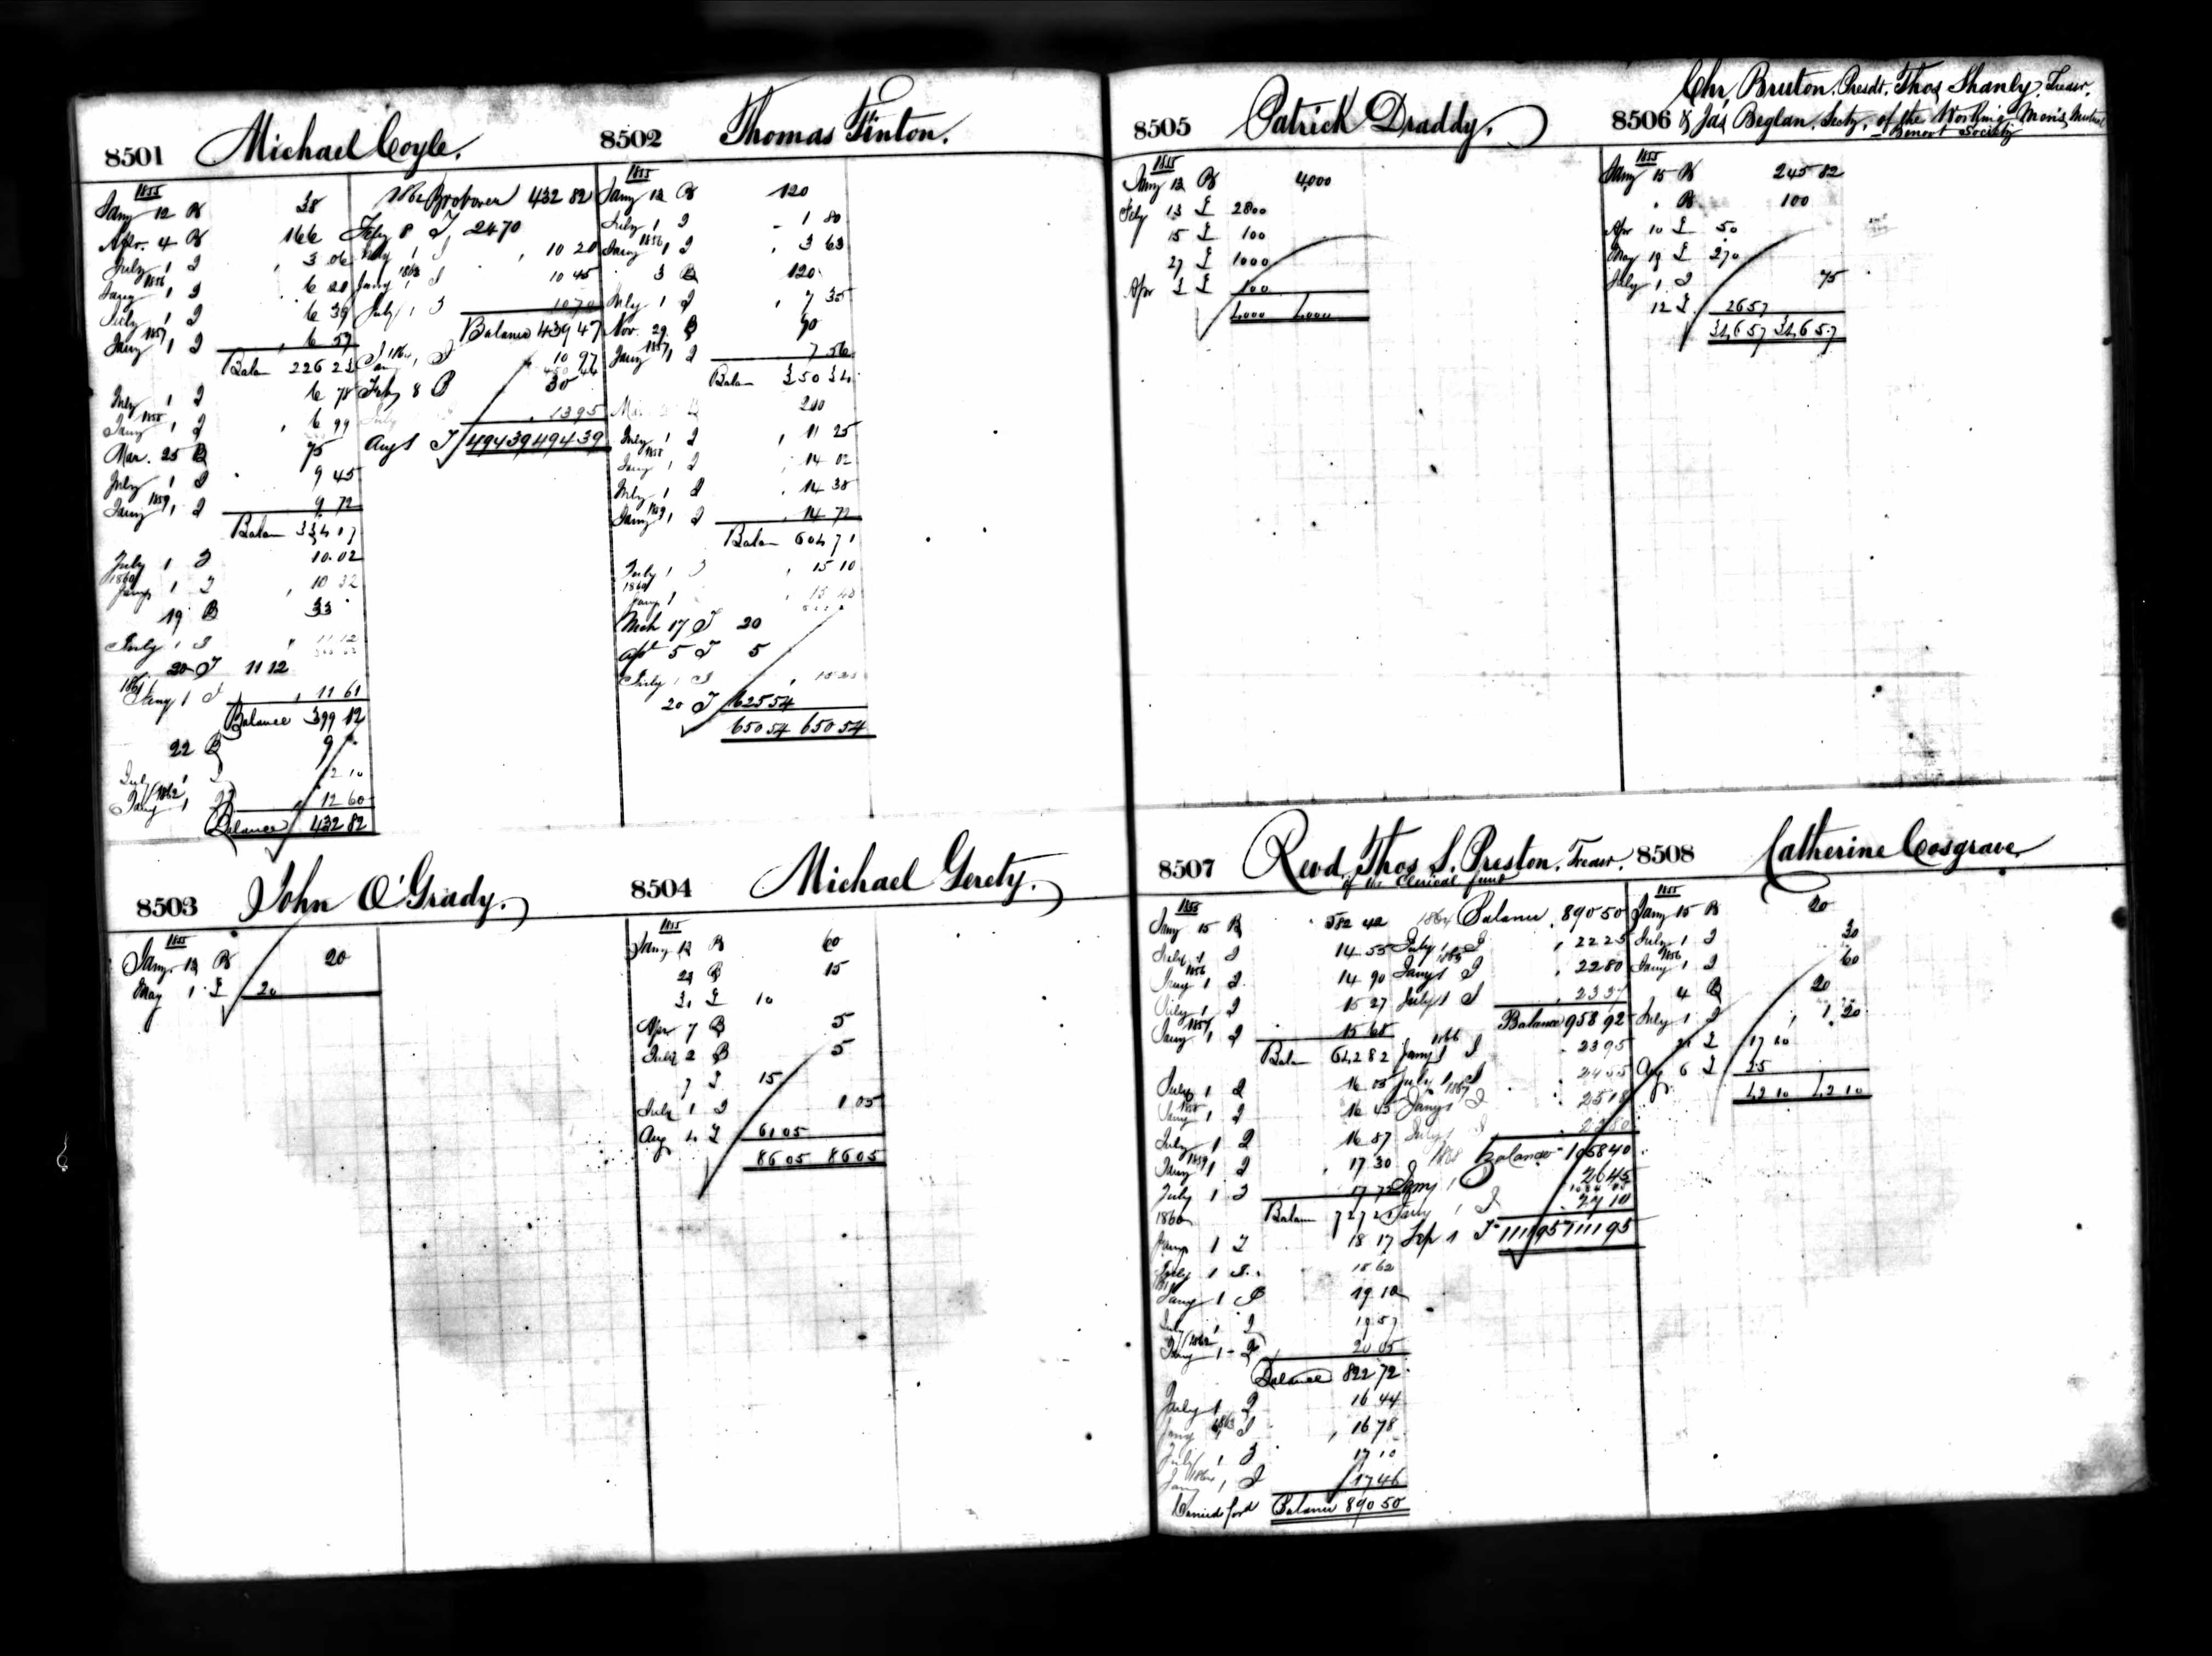 8501 Michael Coyle.
1855
Jany 12 B 38
Apr. 4 B 166
July 1 I , 3 06
1856
Jany 1 I 6 20
July 1 I 6 39
1857
Jany 1 I , 6 59
Balan 226 23
July 1 I 6 78
1858
Jany 1 I , 6 99
Mar. 25 B 75
July 1 I 9 45
1859
Jany 1 I 9 72
Balan 334 17
July 1 I 10.02
1860
Jany 1 I , 10 32
19 B 33
July 1 I 11 12
20 I 11 12
1861
Jany 1 I , 11 61
Balance 399 12
22 B 9
July 1 I 12 10
1862
Jany 1 I 12 60
Balance 432 82
1862 Brotover 432 82
Feby 8 I 24 70
July 1 I , 10 20
1863
Jany 1 I 10 45
July 1 I 10 70
Balance 439 47
1864
Jany 1 I 10 97
450 44
Feby 8 B 30
July 13 95
Aug 1 I 494 39 494 39
8502 Thomas Finton.
1855
Jany 12 B 120
July 1 I - 1 80
1856
Jany 1 I , 3 63
3 B 120
July 1 I , 7 35
Nov. 29 B 90
1857
Jany 1 I 7 56
Balan 350 34
200
July 1 I , 11 25
1858
Jany 1 I , 14 02
July 1 I . 14 38
1859
Jany 1 I , 14 72
Balan 604 71
July 1 I , 15 10
1860
Jany 1 , 15 48
Mch 17 I 20
Apl 5 I 5
July 1 I , 15 25
20 I 625 54
650 54 650 54
8503 John O'Grady.
1855
Jany. 12 B 20
May 1 I 20
8504 Michael Gerety.
1855
Jany 12 B 60
29 B 15
31 I 10
Apr 7 B 5
July 2 B 5
7 I 15
July 1 I 1 05
Aug 4 I 61 05
86 05 86 05
8505 Patrick Draddy.
1855
Jany 12 B 4,000
Feby 13 I 2800
15 I 100
27 I 1000
Apr 3 I 100
4000 4000
8506 Chr. Bruton. Presdt. Thos Shanly. Treasr.
& Jas Beglan. Secty. of the Working Men's Mutual
Benevt Society
1855
Jany 15 B 245 82
" B 100
Apr 10 I 50
May 19 I 270
July 1 I 75
12 I 26 57
346 57 346 57
8507 Revd. Thos S. Preston. Treasr.
of the Clerical fund
1855
Jany 15 B 582 42
July 1 I 14 55
1856
Jany 1 I 14 90
July 1 I 15 27
1857
Jany 1 I 15 68
Balan 642 82
July 1 I 16 05
1858
Jany 1 I 16 45
July 1 I 16 87
1859
Jany 1 I , 17 30
July 1 I 17 72
1860 Balan 727 21
Jany 1 I 18 17
July 1 I 18 62
1861
Jany 1 I 19 10
July 1 I 19 57
1862
Jany 1 I 20 05
Balance 822 72
July 1 I 16 44
1863
Jany 1 I , 16 78
July 1 I 17 10
1864
Jany 1 I 17 46
Carried ford Balance 890 50
1864 Balance . 890 50
July 1 I , 22 25
1865
Jany 1 I 22 80
July 1 I 23 37
Balance 958 92
1866
Jany 1 I . 23 95
July 1 I 24 55
1867
Jany 1 I 25 18
July 1 I 25 80
1868 Balance 1058 40
Jany 1 26 45
July 1 I . 27 10
Sep 1 I 1111 95 1111 95
8508 Catherine Cosgrave
1855
Jany 15 B 20
July 1 I 30
1856
Jany 1 I 60
4 B 20
July 1 I , 1 20
21 I 17 10
Aug 6 I 25
42 10 42 10